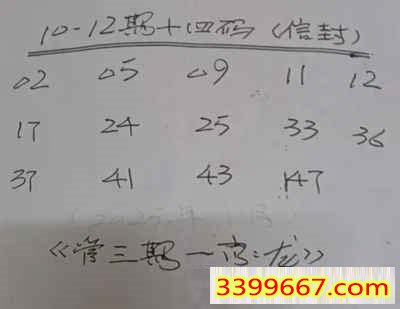 10-12期十四码《信封》
02 05 09 11 12
17 24 25 33 36
37 41 43 47
《管三期一肖:龙》
3399667.com